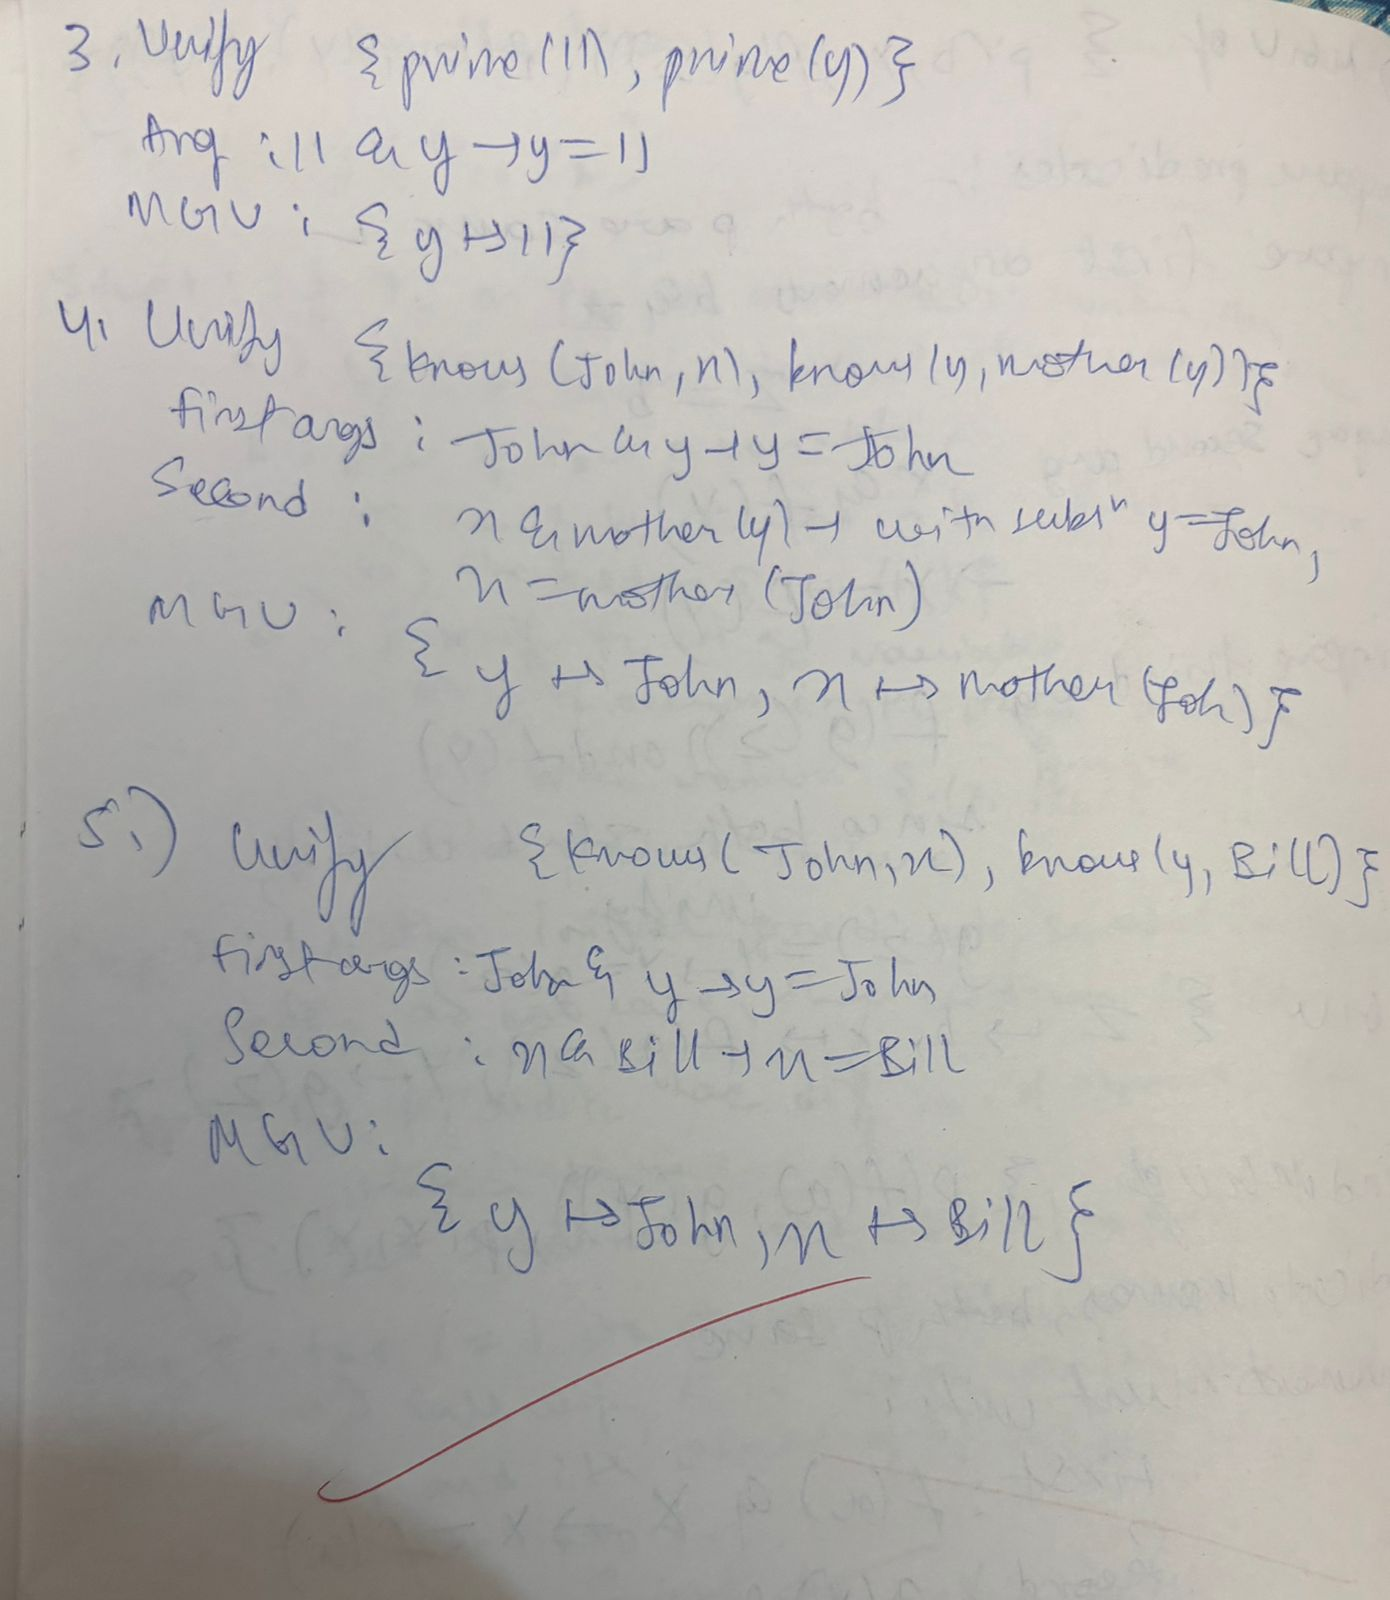 3. Unify {prime(11), prime(y)}
Arg : 11 & y → y = 11
MGU : {y ↦ 11}
4. Unify {knows (John, x), knows (y, mother (y))}
first args : John & y → y = John
Second : x & mother (y) → with subsⁿ y = John,
x = mother (John)
MGU :
{ y ↦ John, x ↦ mother (Joh) }
5.) Unify {knows( John, x), knows (y, Bill)}
first args : John & y → y = John
Second : x & Bill → x = Bill
MGU :
{ y ↦ John, x ↦ Bill }